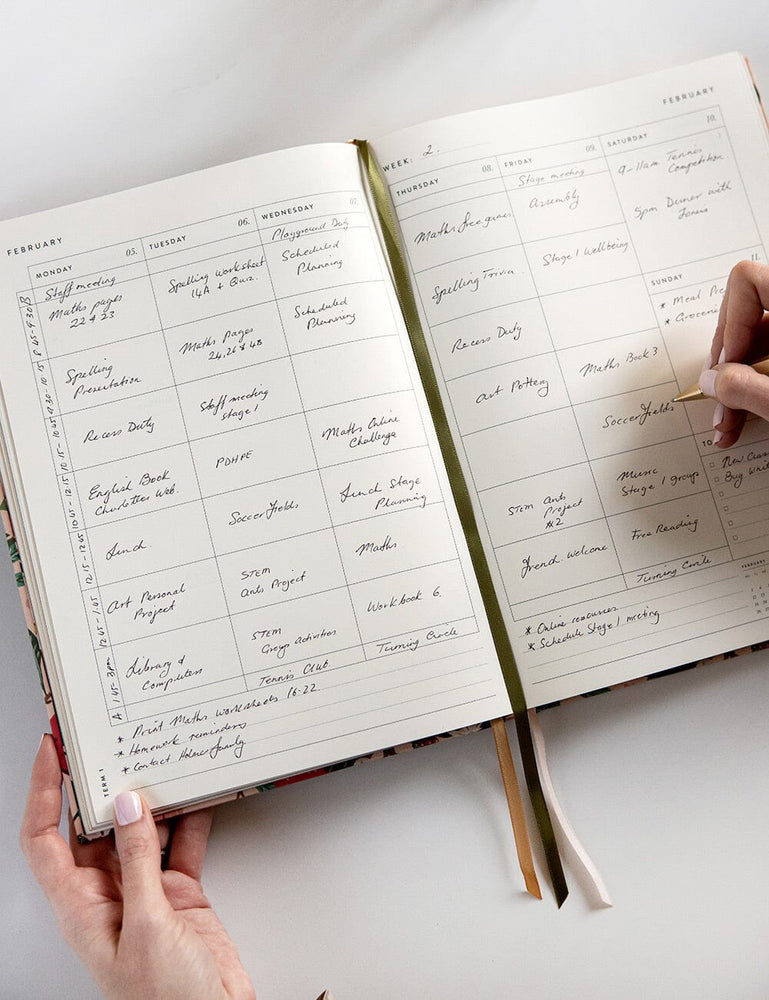 FEBRUARY
MONDAY 05.
TUESDAY 06.
WEDNESDAY 07.
B
Staff meeting
Playground Duty
8.45-9.30
Maths pages
22 & 23
Spelling worksheet
14A + Quiz.
Scheduled
Planning
9.30-10.15
Spelling
Presentation
Maths pages
24, 26 & 48
Scheduled
Planning
10.15-10.45
Recess Duty
Staff meeting
Stage 1
10.45-12.15
English Book
Charlottes Web.
PDHPE
Maths Online
Challenge
12.15-12.45
Lunch
Soccer fields
Lunch Stage
Planning
12.45-1.45
Art Personal
Project
STEM
Ants Project
Maths
1.45-3pm
Library &
Computers
STEM
Group activities
Workbook 6.
A
Tennis Club
Turning Circle
* Print Maths worksheets 16-22
* Homework reminders
* Contact Holmes family
TERM 1
WEEK: 2.
FEBRUARY
THURSDAY 08.
FRIDAY 09.
SATURDAY 10.
Stage meeting
Maths free games
Assembly
9-11am Tennis
Competition
5pm Dinner with
Spelling Trivia
Stage 1 Wellbeing
SUNDAY 11.
* Meal
*
Recess Duty
Art Pottery
Maths Book 3
Soccer fields
TO
New
Bug
STEM Ants
Project
Music
Stage 1 group
French Welcome
Free Reading
Turning Circle
FEBRUARY
* Online resources
* Schedule Stage 1 meeting